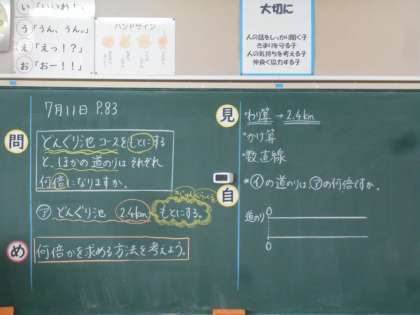 い「いいね！」
う「うん、うん。」
え「えっ！？」
お「おー！！」
ハンドサイン
大切に
人の話をしっかり聞く子
きまりを守る子
人の気持ちを考える子
仲良く協力する子
7月11日 P.83
問
どんぐり池コースをもとにする
と、ほかの道のりはそれぞれ
何倍になりますか。
㋐どんぐり池 2.4km もとにする。
め
何倍かを求める方法を考えよう。
見
・わり算 → 2.4km
・かけ算
・数直線
自
*㋑の道のりは㋐の何倍ですか。
道のり
0
0